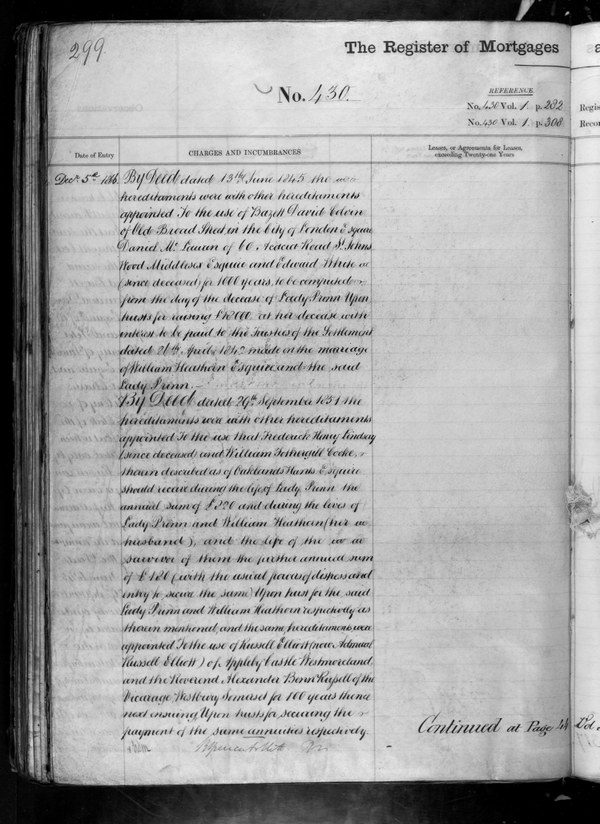 299.
The Register of Mortgages
No. 430.
REFERENCE.
No. 430 Vol. 1. p. 282
No. 430 Vol. 1. p. 308
Date of Entry
CHARGES AND INCUMBRANCES
Leases, or Agreements for Leases,
exceeding Twenty-one Years
Decr. 5th 186
By Deed dated 13th June 1845 the
hereditaments were with other hereditaments
appointed To the use of Bazett David Colvin
of Old Broad Street in the City of London Esquire
Daniel Mc. of 60 Acacia Road St. Johns
Wood Middlesex Esquire and Edward White
(since deceased) for 1000 years, to be computed
from the day of the decease of Lady Prinn Upon
trusts for raising £12000 at her decease with
interest to be paid to the Trustees of the Settlement
dated 26th April 1842 made on the marriage
of William Heathorn Esquire and the said
Lady Prinn.
By Deed dated 29th September 1851 the
hereditaments were with other hereditaments
appointed To the use that Frederick Henry Lindsay
(since deceased) and William Fothergill Cooke,
therein described as of Oaklands Hants Esquire
should receive during the life of Lady Prinn the
annual sum of £220 and during the lives of
Lady Prinn and William Heathorn (her
husband), and the life of the
survivor of them the further annual sum
of £126 (with the usual powers of distress and
entry to secure the same) Upon trust for the said
Lady Prinn and William Heathorn respectively as
therein mentioned, and the same hereditaments were
appointed To the use of Russell Elliott (now Admiral
Russell Elliott) of Appleby Castle Westmoreland
and the Reverend Alexander Benn Russell of the
Vicarage Westbury Somerset for 100 years thence
next ensuing Upon trusts for securing the
payment of the same annuities respectively.
Continued at Page 44